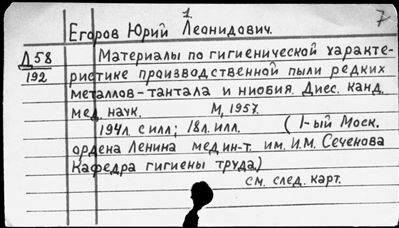 1
7
Егоров Юрий Леонидович.
Д58
192
Материалы по гигиенической характе-
ристике производственной пыли редких
металлов-тантала и ниобия. Дисс. канд.
мед. наук. М, 1957.
194л. с илл; 18л. илл. (1-ый Моск.
ордена Ленина мед ин-т. им. И.М. Сеченова
Кафедра гигиены труда)
см. след. карт.